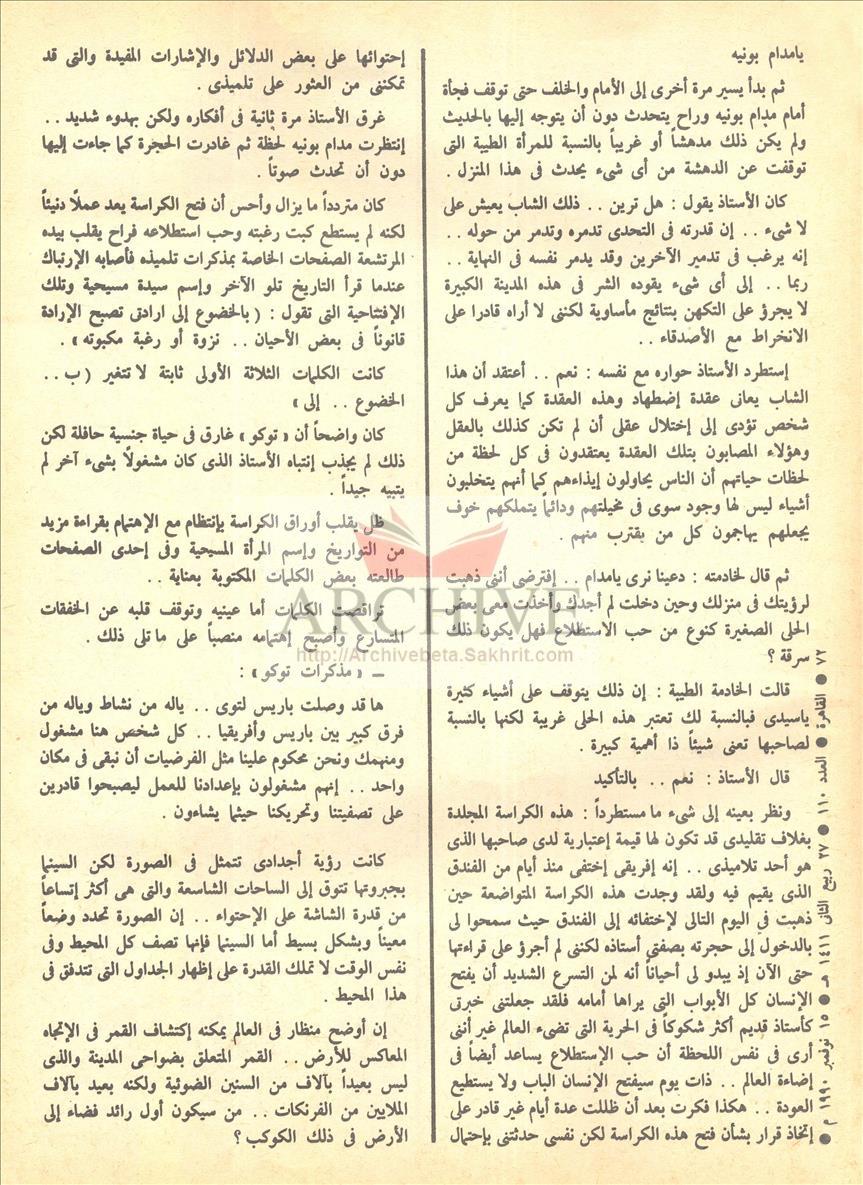 يامدام بونيه
ثم بدأ يسير مرة أخرى إلى الأمام والخلف حتى توقف فجأة
أمام مدام بونيه وراح يتحدث دون أن يتوجه إليها بالحديث
ولم يكن ذلك مدهشاً أو غريباً بالنسبة للمرأة الطيبة التى
توقفت عن الدهشة من أى شىء يحدث فى هذا المنزل .
كان الأستاذ يقول : هل ترين . . ذلك الشاب يعيش على
لا شىء . . إن قدرته فى التحدى تدمره وتدمر من حوله . .
إنه يرغب فى تدمير الآخرين وقد يدمر نفسه فى النهاية . .
ربما . . إلى أى شىء يقوده الشر فى هذه المدينة الكبيرة
لا يجرؤ على التكهن بنتائج مأساوية لكننى لا أراه قادرا على
الانخراط مع الأصدقاء . .
إستطرد الأستاذ حواره مع نفسه : نعم . . أعتقد أن هذا
الشاب يعانى عقدة إضطهاد وهذه العقدة كما يعرف كل
شخص تؤدى إلى إختلال عقلى أن لم تكن كذلك بالعقل
وهؤلاء المصابون بتلك العقدة يعتقدون فى كل لحظة من
لحظات حياتهم أن الناس يحاولون إيذاءهم كما أنهم يتخليون
أشياء ليس لها وجود سوى فى مخيلتهم ودائماً يتملكهم خوف
يجعلهم يهاجمون كل من يقترب منهم .
ثم قال لخادمته : دعينا نرى يامدام . . إفترضى أننى ذهبت
لرؤيتك فى منزلك وحين دخلت لم أجدك وأخذت معى بعض
الحلى الصغيرة كنوع من حب الاستطلاع فهل يكون ذلك
سرقة ؟
قالت الخادمة الطيبة : إن ذلك يتوقف على أشياء كثيرة
ياسيدى فبالنسبة لك تعتبر هذه الحلى غريبة لكنها بالنسبة
لصاحبها تعنى شيئاً ذا أهمية كبيرة .
قال الأستاذ : نعم . . بالتأكيد
ونظر بعينه إلى شىء ما مستطرداً : هذه الكراسة المجلدة
بغلاف تقليدى قد تكون لها قيمة إعتبارية لدى صاحبها الذى
هو أحد تلاميذى . . إنه إفريقى إختفى منذ أيام من الفندق
الذى يقيم فيه ولقد وجدت هذه الكراسة المتواضعة حين
ذهبت فى اليوم التالى لإختفائه إلى الفندق حيث سمحوا لى
بالدخول إلى حجرته بصفتى أستاذه لكننى لم أجرؤ على قراءتها
حتى الآن إذ يبدو لى أحياناً أنه لمن التسرع الشديد أن يفتح
الإنسان كل الأبواب التى يراها أمامه فلقد جعلتنى خبرتى
كأستاذ قديم أكثر شكوكاً فى الحرية التى تضىء العالم غير أننى
أرى فى نفس اللحظة أن حب الإستطلاع يساعد أيضاً فى
إضاءة العالم . . ذات يوم سيفتح الإنسان الباب ولا يستطيع
العودة . . هكذا فكرت بعد أن ظللت عدة أيام غير قادر على
إتخاذ قرار بشأن فتح هذه الكراسة لكن نفسى حدثتنى بإحتمال
إحتوائها على بعض الدلائل والإشارات المفيدة والتى قد
تمكننى من العثور على تلميذى .
غرق الأستاذ مرة ثانية فى أفكاره ولكن بهدوء شديد . .
إنتظرت مدام بونيه لحظة ثم غادرت الحجرة كما جاءت إليها
دون أن تحدث صوتاً .
كان متردداً ما يزال وأحس أن فتح الكراسة يعد عملاً دنيئاً
لكنه لم يستطع كبت رغبته وحب استطلاعه فراح يقلب بيده
المرتشعة الصفحات الخاصة بمذكرات تلميذه فأصابه الإرتباك
عندما قرأ التاريخ تلو الآخر وإسم سيدة مسيحية وتلك
الإفتتاحية التى تقول : ( بالخضوع إلى ارادق تصبح الإرادة
قانوناً فى بعض الأحيان . . نزوة أو رغبة مكبوته » .
كانت الكلمات الثلاثة الأولى ثابتة لا تتغير ( ب . .
الخضوع . . إلى »
كان واضحاً أن « توكو » غارق فى حياة جنسية حافلة لكن
ذلك لم يجذب إنتباه الأستاذ الذى كان مشغولاً بشىء آخر لم
يتبيه جيداً .
ظل يقلب أوراق الكراسة بإنتظام مع الإهتمام بقراءة مزيد
من التواريخ وإسم المرأة المسيحية وفى إحدى الصفحات
طالعته بعض الكلمات المكتوبة بعناية . .
تراقصت الكلمات أما عينيه وتوقف قلبه عن الخفقات
المتسارع وأصبح إهتمامه منصباً على ما تلى ذلك .
ــ « مذكرات توكو » :
ها قد وصلت باريس لتوى . . ياله من نشاط وياله من
فرق كبير بين باريس وأفريقيا . . كل شخص هنا مشغول
ومنهمك ونحن محكوم علينا مثل الفرضيات أن نبقى فى مكان
واحد . . إنهم مشغولون بإعدادنا للعمل ليصبحوا قادرين
على تصفيتنا وتحريكنا حيثما يشاءون .
كانت رؤية أجدادى تتمثل فى الصورة لكن السينما
بجبروتها تتوق إلى الساحات الشاسعة والتى هى أكثر إتساعاً
من قدرة الشاشة على الإحتواء . . إن الصورة تحدد وضعاً
معيناً وبشكل بسيط أما السينما فإنها تصف كل المحيط وفى
نفس الوقت لا تملك القدرة على إظهار الجداول التى تتدفق فى
هذا المحيط .
إن أوضح منظار فى العالم يمكنه إكتشاف القمر فى الإتجاه
المعاكس للأرض . . القمر المتعلق بضواحى المدينة والذى
ليس بعيداً بآلاف من السنين الضوئية ولكنه بعيد بآلاف
الملايين من الفرنكات . . من سيكون أول رائد فضاء إلى
الأرض فى ذلك الكوكب ؟
٧٢ ● القاهرة ● العدد ١١٠ ● ٢٧ ربيع الثانى ١٤١١ هـ ● ١٥ نوفمبر ١٩٩٠ م ●
ARCHIVE
http://Archivebeta.Sakhrit.com